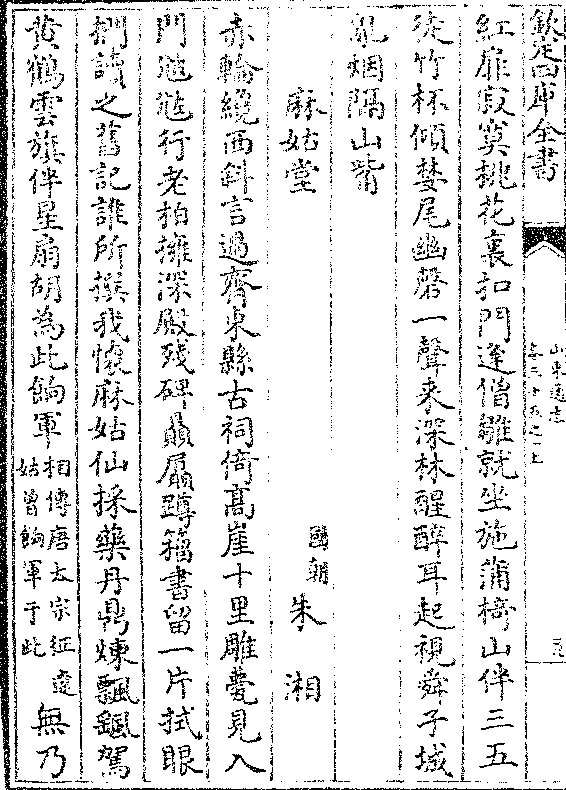 欽定四庫全書
山東通志
卷三十五之一上
紅扉寂寞桃花裏扣門逢僧雛就坐施蒲椅山伴三五
徒竹杯傾婪尾幽磬一聲来深林醒醉耳起視舜子城
亂烟隔山觜
麻姑堂　國朝朱湘
赤輪繞西斜言過齊東縣古祠倚高崖十里雕甍見入
門迤邐行老柏擁深殿残碑贔屭蹲籀書留一片拭眼
捫讀之舊記誰所撰我懷麻姑仙採藥丹鼎煉飄飖駕
黄鶴雲旗伴星扇胡為此餉軍相傳唐太宗征遼姑曾餉軍于此無乃